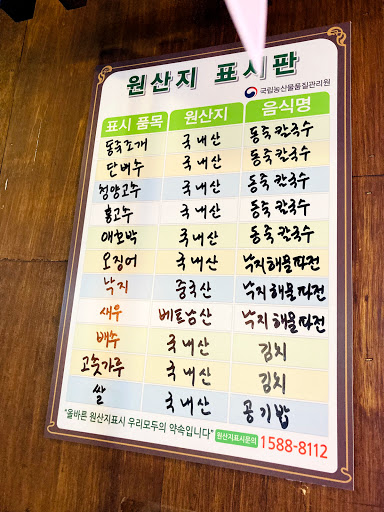 원산지 표시판
국립농산물품질관리원
표시 품목 원산지 음식명
동죽조개 국내산 동죽 칼국수
단배수 국내산 동죽 칼국수
청양고추 국내산 동죽 칼국수
홍고추 국내산 동죽 칼국수
애호박 국내산 동죽 칼국수
오징어 국내산 낙지해물파전
낙지 중국산 낙지해물파전
새우 베트남산 낙지해물파전
배추 국내산 김치
고춧가루 국내산 김치
쌀 국내산 공기밥
"올바른 원산지표시 우리모두의 약속입니다" 원산지표시문의 1588-8112